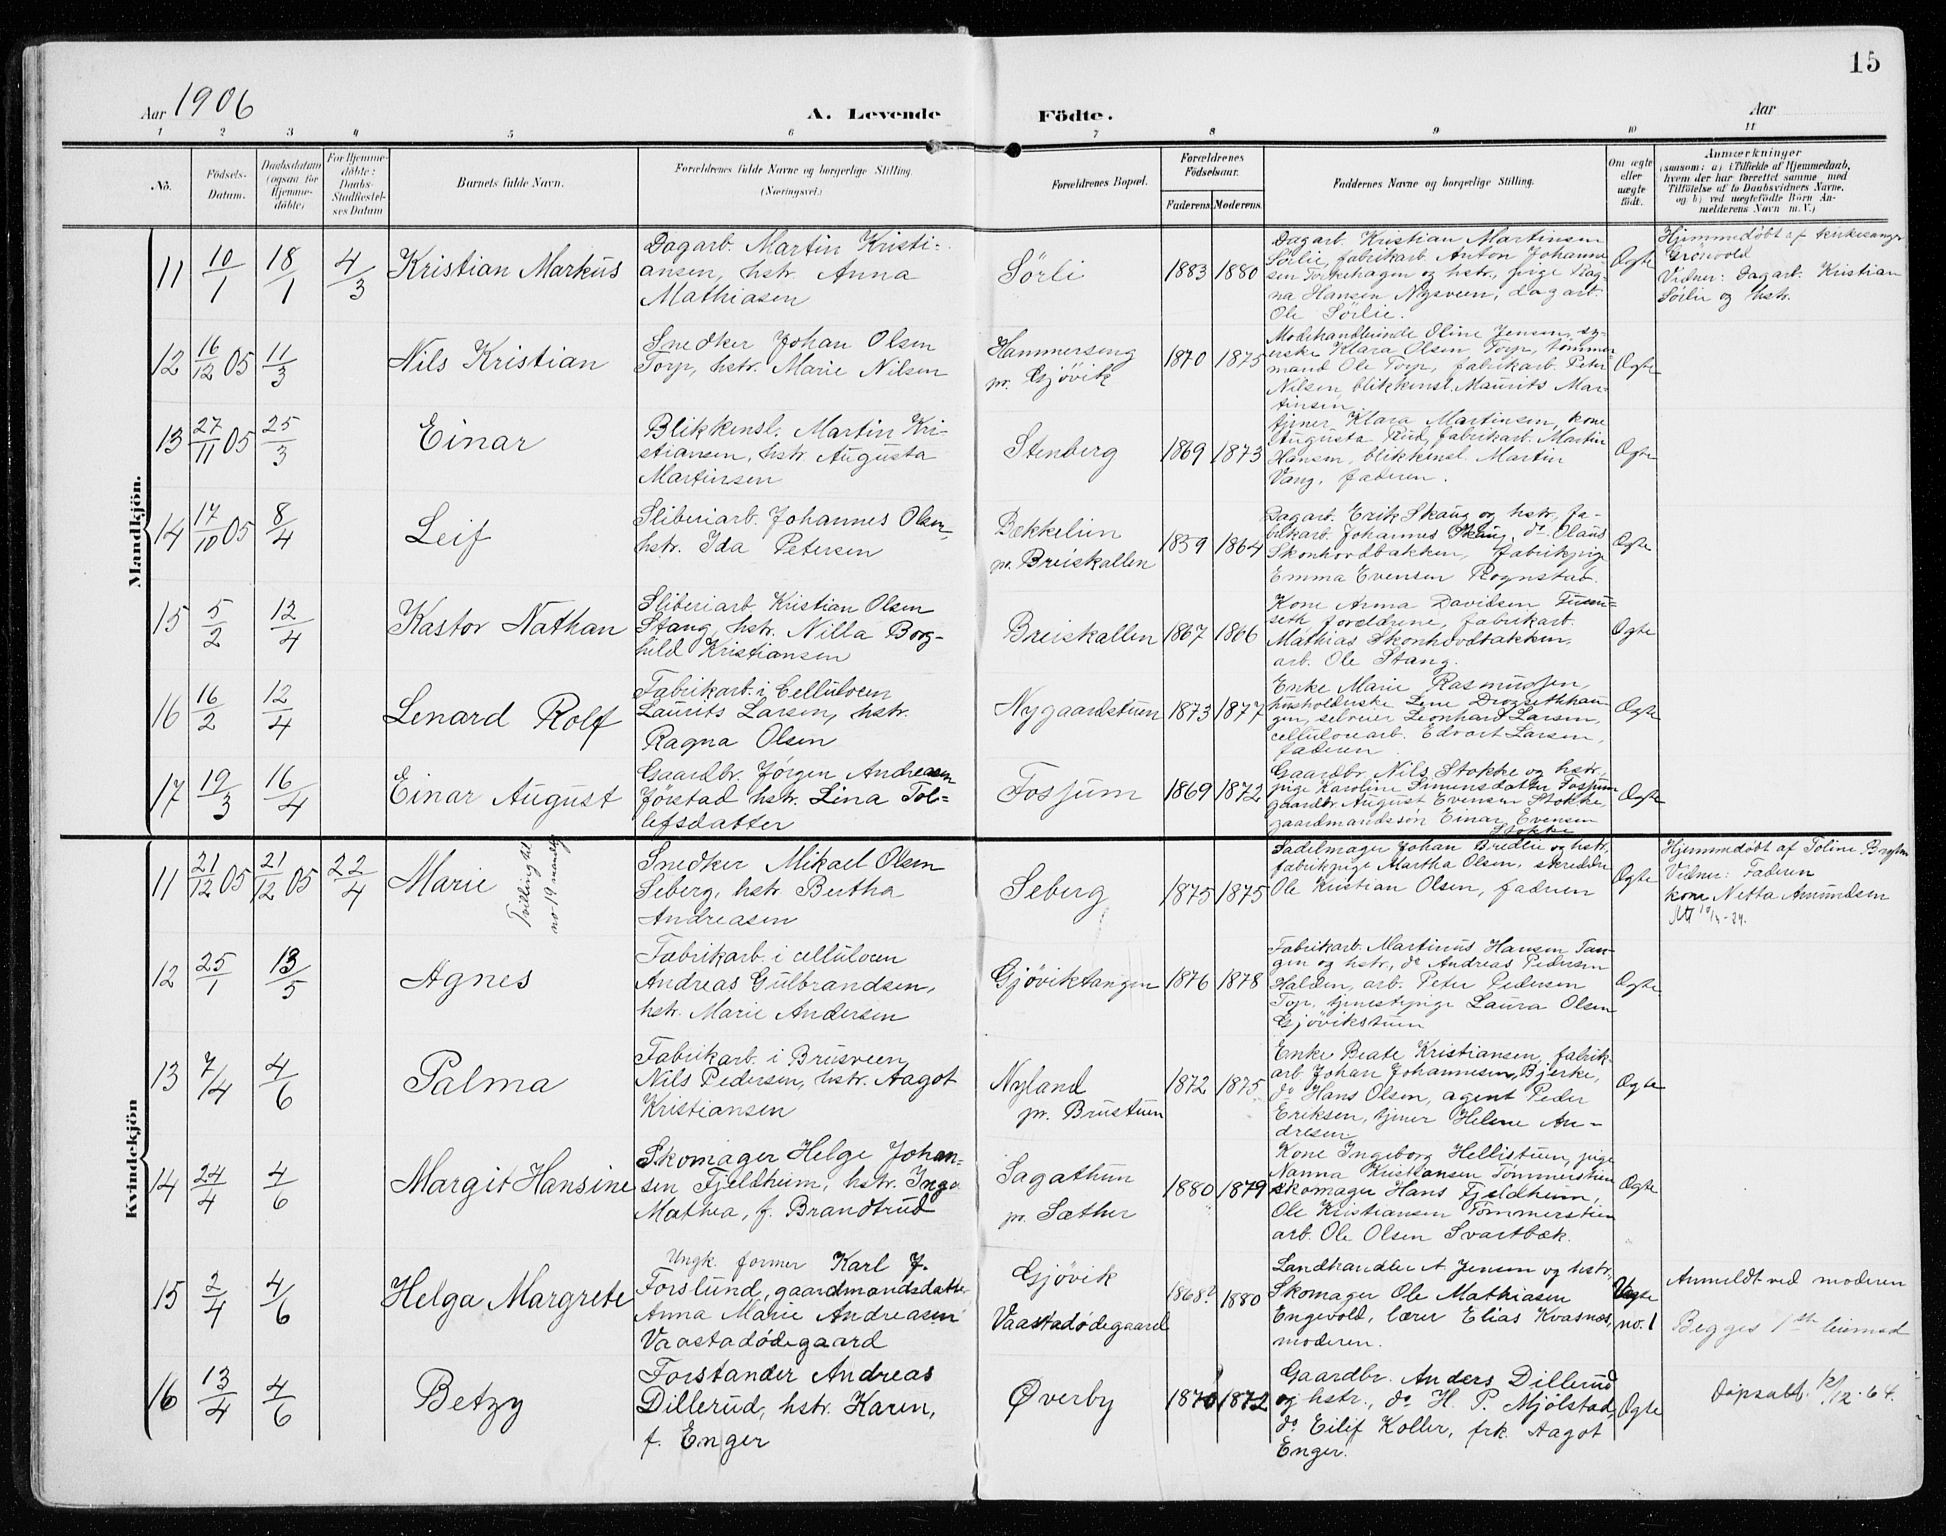 15
Aar 1906
A. Levende Födte.
Aar
1 2 3 4 5 6 7 8 9 10 11
No.
Födsels-
Datum.
Daabsdatum
(ogsaa for
Hjemme-
döbte)
For Hjemme-
döbte:
Daabs-
Stadfæstel-
ses Datum
Barnets fulde Navn.
Forældrenes fulde Navne og borgerlige Stilling.
(Næringsvei.)
Forældrenes Bopæl.
Forældrenes
Födselsaar.
Faderens Moderens.
Faddernes Navne og borgerlige Stilling.
Om ægte
eller
uægte
født.
Anmærkninger
(saasom: a) i Tilfælde af Hjemmedaab,
hvem der har forrettet samme med
Tilföielse af to Daabsvidners Navne,
og b) ved uægtefödte Börn An-
melderens Navn m. V.)
Mandkjön.
11 10/1 18/1 4/3 Kristian Markus
Dagarb. Martin Kristi-
ansen, hstr. Anna
Mathiasen
Sörli
1883 1880
Dagarb. Kristian Martinsen
Sörlie, fabrikarb. Anton Johanne
sen Torkehagen og hstr, pige Rag-
na Hansen Nysveen, dagarb.
Ole Sørlie.
Ægte
Hjemmedøbt af kirkesanger
Grönvold
Vidner: Dagarb. Kristian
Sörlie og hstr.
12 16/12 05 11/3 Nils Kristian
Snedker Johan Olsen
Torp, hstr. Marie Nilsen
Hammerseng
pr. Gjövik
1870 1875
Modehandlerinde Oline Jensen, sy-
erske Klara Olsen Torp, tömmer
mand Ole Torp, fabrikarb. Peter
Nilsen, blikkensl. Maurits Mar-
tinsen
Ægte
13 27/11 05 25/3 Einar
Blikkensl. Martin Kri-
stiansen, hstr Augusta
Martinsen
Stenberg
1869 1873
tjener Klara Martinsen, kone
Augusta Rud, fabrikarb. Martin
Hansen, blikkensl. Martin
Vang, faderen.
Ægte
14 17/10 05 8/4 Leif
Sliberiarb. Johannes Olsen,
hstr. Ida Petersen
Bækkelien
pr. Breiskallen
1859 1864
Dagarb. Erik Skaug og hstr, fa-
brikarb. Johannes Skaug, do Olaus
Skonhovdbakken, fabrikpige
Emma Evensen Rognstad.
Ægte
15 5/2 12/4 Kastor Nathan
Sliberiarb. Kristian Olsen
Stang, hstr. Nilla Borg-
hild Kristiansen
Breiskallen
1867 1866
Kone Anna Davidsen
forældrene, fabrikarb.
Mathias Skonhovdbakken,
arb. Ole Stang.
Ægte
16 16/2 12/4 Lenard Rolf
Fabrikarb. i Cellulosen
Laurits Larsen, hstr.
Ragna Olsen
Nygaardstuen
1873 1877
Enke Marie Rasmussen,
husholderske Lene Drogsethhau-
gen, selveier Leonhard Larsen,
cellulosearb. Edvart Larsen,
faderen
Ægte
17 19/3 16/4 Einar August
Gaardbr. Jörgen Andreasen
Jörstad hstr. Lina Tol-
lefsdatter
Fossum
1869 1872
Gaardbr Nils Stokke og hstr,
pige Karoline Simensdatter Fossum
gaardbr August Evensen Stokke,
gaardmandssön Einar Evensen
Stokke
Ægte
Kvindekjön
11 21/12 05 21/12 05 22/4 Marie
Tvilling til
no 19 mandkj
Snedker Mikael Olsen
Seberg, hstr Bertha
Andreasen
Seberg
1875 1875
Sadelmager Johan Bredlie og hstr,
fabrikpige Martha Olsen, skrædder
Ole Kristian Olsen, faderen
Ægte
Hjemmedöbt af Toline
Vidner: Faderen
kone Netta Amundsen
12 25/1 13/5 Agnes
Fabrikarb. i cellulosen
Andreas Gulbrandsen,
hstr. Marie Andersen
Gjöviktangen
1876 1878
Fabrikarb. Martinus Hansen Tan-
gen og hstr, do Andreas Pedersen
Halden, arb. Peter Pedersen
Torp, tjenestepige Laura Olsen
Gjövikstuen
Ægte
13 7/4 4/6 Palma
Fabrikarb. i Brusveen
Nils Pedersen, hstr. Aagot
Kristiansen
Nyland
pr. Brustuen
1872 1875
Enke Beate Kristiansen, fabrik-
arb Johan Johannesen, Bjerke,
do Hans Olsen, agent Peder
Eriksen, tjener Helene An-
dresen
Ægte
14 24/4 4/6 Margit Hansine
Skomager Helge Johan-
sen Fjeldheim, hstr. Inga
Mathea, f. Brandtrud
Sagathun
pr. Sæther
1880 1879
Kone Ingeborg Hellistuen, pige
Nanna Kristiansen Tømmerstien
skomager Hans Fjeldheim,
Ole Kristiansen Tömmerstien
arb. Ole Olsen Svartbæk.
Ægte
15 2/4 4/6 Helga Margrete
Ungk. former Karl J.
Forslund, gaardmandsdatter
Anna Marie Andreasen
Vaastadødegaard
Gjövik
Vaastadödegaard
1868? 1880
Landhandler A Jensen og hstr.
Skomager Ole Mathiasen
Engevold, lærer Elias Kvasnes,
moderen.
Uægte
no. 1
Anmeldt ved moderen
Begges 1ste leiermaal
16 13/4 4/6 Betzy
Forstander Andreas
Dillerud, hstr. Karen,
f. Enger
Øverby
1870 1872
Gaardbr. Anders Dillerud
og hstr., do H. P. Mjölstad,
do Eilif Koller, frk. Aagot
Enger.
Ægte
Döpsatt. 12/12.64.